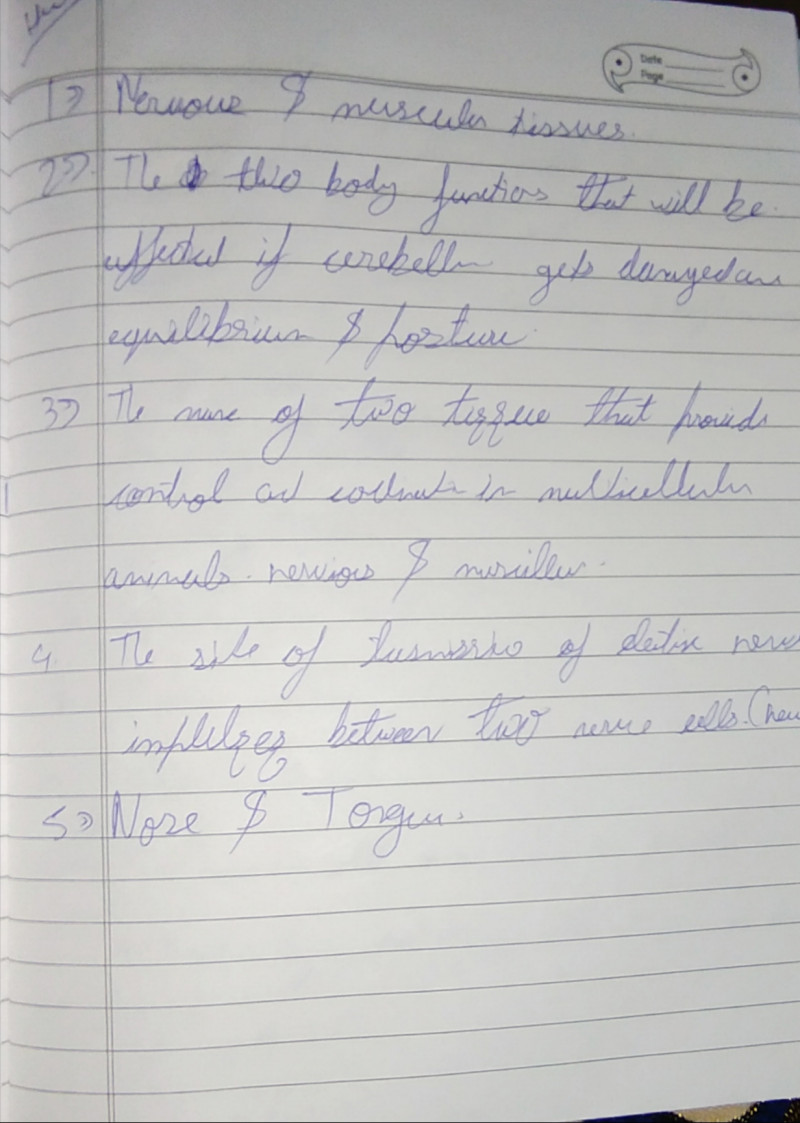 Date
Page
1) Nervous & muscular tissues.
2) The two body functions that will be
affected if cerebellum gets damaged are
equilibrium & posture.
3) The name of two tissue that provide
control and in multicellular
animals. nervious & muscular.
4. The site of of nerve
impulses between two nerve cells. (neu
5) Nose & Tongue.